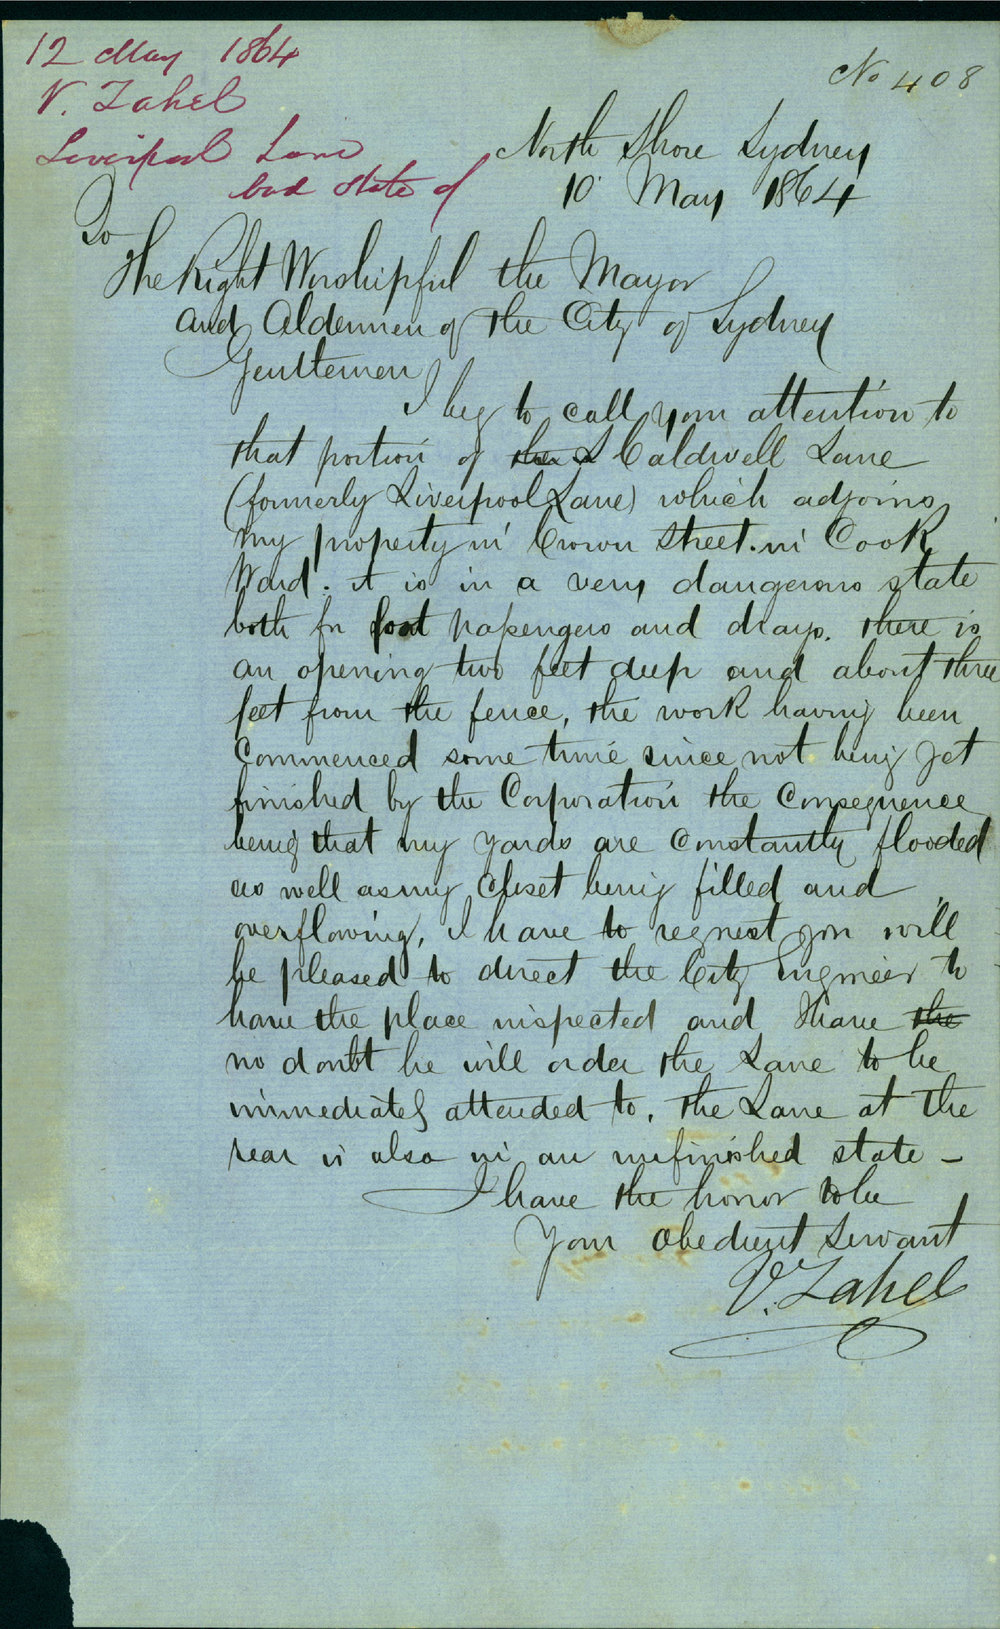 12 May 1864
V. Zahel
Liverpool Lane
bad state of
No 408
North Shore Sydney
10 May 1864
To
The Right Worshipful the Mayor
and Aldermen of the City of Sydney
Gentlemen
I beg to call your attention to
that portion of the L Caldwell Lane
(formerly Liverpool Lane) which adjoins
my property in Crown Street in Cook
Ward. it is in a very dangerous state
both for foot passengers and drays. there is
an opening two feet deep and about three
feet from the fence, the work having been
Commenced some time since not being yet
finished by the Corporation the Consequence
being that my yards are Constantly flooded
as well as my Closet being filled and
overflowing, I have to request you will
be pleased to direct the City Engineer to
have the place inspected and I have the
no doubt he will order the Lane to be
immediately attended to, the Lane at the
rear is also in an unfinished state –
I have the honor to be
Your obedient Servant
V. Zahel